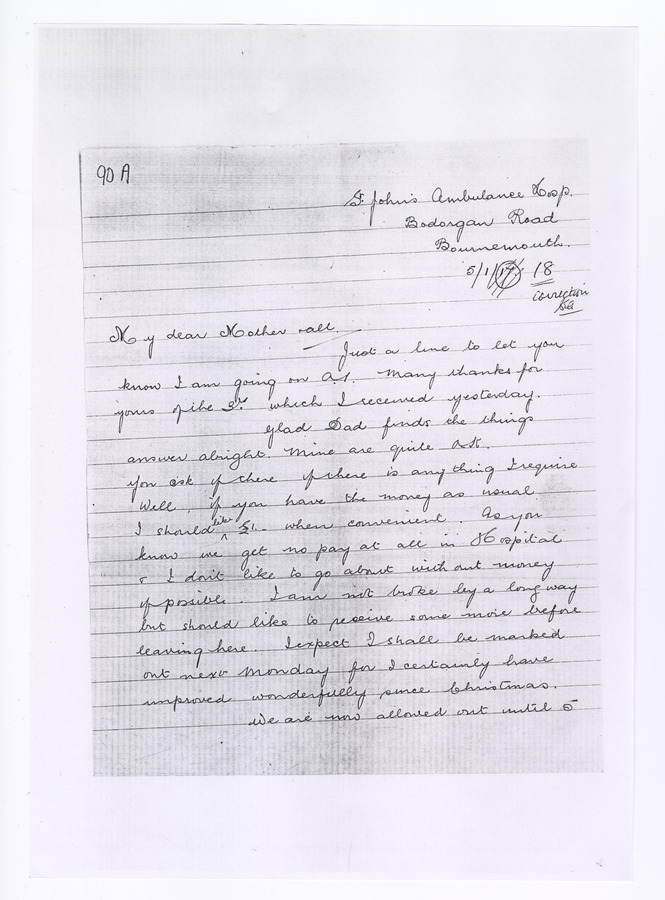 90 A
St. John's Ambulance Hosp.
Bodorgan Road
Bournemouth.
5/1/17. 18
correction
My dear Mother & all.
Just a line to let you
know I am going on A.1. Many thanks for
yours of the 3rd which I received yesterday.
Glad Dad finds the things
answer alright. Mine are quite O.K.
You ask if there if there is anything I require
Well, if you have the money as usual
I should like £1. when convenient. As you
know we get no pay at all in Hospital
& I don't like to go about without money
if possible. I am not broke by a long way
but should like to receive some more before
leaving here. I expect I shall be marked
out next Monday for I certainly have
improved wonderfully since Christmas.
We are now allowed out until 5